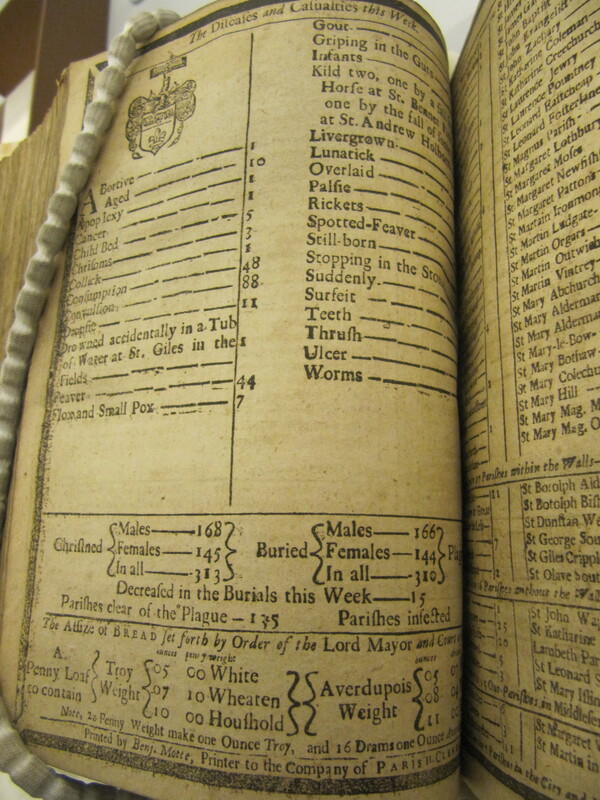 The Diseases and Casualties this Week.
Abortive 1
Aged 10
Apoplexy 1
Cancer 1
Child Bed 5
Chrisoms 3
Collick 1
Consumption 48
Convulsion 88
Dropsie 11
Drowned accidentally in a Tub
of Water at St. Giles in the 1
Fields
Feaver 44
Flox and Small Pox 7
Gout
Griping in the Guts
Infants
Kild two, one by a
Horse at St. Bennet
one by the fall of
at St. Andrew Holborn
Livergrown
Lunatick
Overlaid
Palsie
Rickets
Spotted-Feaver
Still-born
Stopping in the Stom
Suddenly
Surfeit
Teeth
Thrush
Ulcer
Worms
Christned { Males — 168 Females — 145 In all — 313 }
Buried { Males — 166 Females — 144 In all — 310 } Plag
Decreased in the Burials this Week — 15
Parishes clear of the Plague — 135 Parishes infected
The Assize of BREAD set forth by Order of the Lord Mayor and Court
ounces penny weight ounces
A Penny Loaf to contain { Troy Weight { 05 00 White
07 10 Wheaten
10 00 Houshold } Averdupois Weight { 05
08
11
Note, 20 Penny Weight make one Ounce Troy, and 16 Drams one Ounce
Printed by Benj. Motte, Printer to the Company of PARISH-CLER
St Katharine Coleman
St Katharine Creechurch
St Lawrence Jewry
St Lawrence Pountney
St Leonard Eastcheap
St Leonard Fosterlane
St Magnus Parish
St Margaret Lothbury
St Margaret Moses
St Margaret Newfish
St Margaret Pattons
St Martin Ironmon
St Martin Ludgate
St Martin Orgars
St Martin Outwich
St Martin Vintrey
St Mary Abchurch
St Mary Alderman
St Mary Alderma
St Mary-le-Bow
St Mary Bothaw
St Mary Colechu
St Mary Hill
St Mary Mag. M
St Mary Mag. O
Parishes within the Walls
St Botolph Ald
St Botolph Bish
St Dunstan We
St George Sou
St Giles Crippl
St Olave South
Parishes without the Wal
St John Wa
St Katharine
Lambeth Par
St Leonard S
St Mary Islin
Out-Parishes in Middlesex
St Margaret
St Martin in
Parishes in the City and